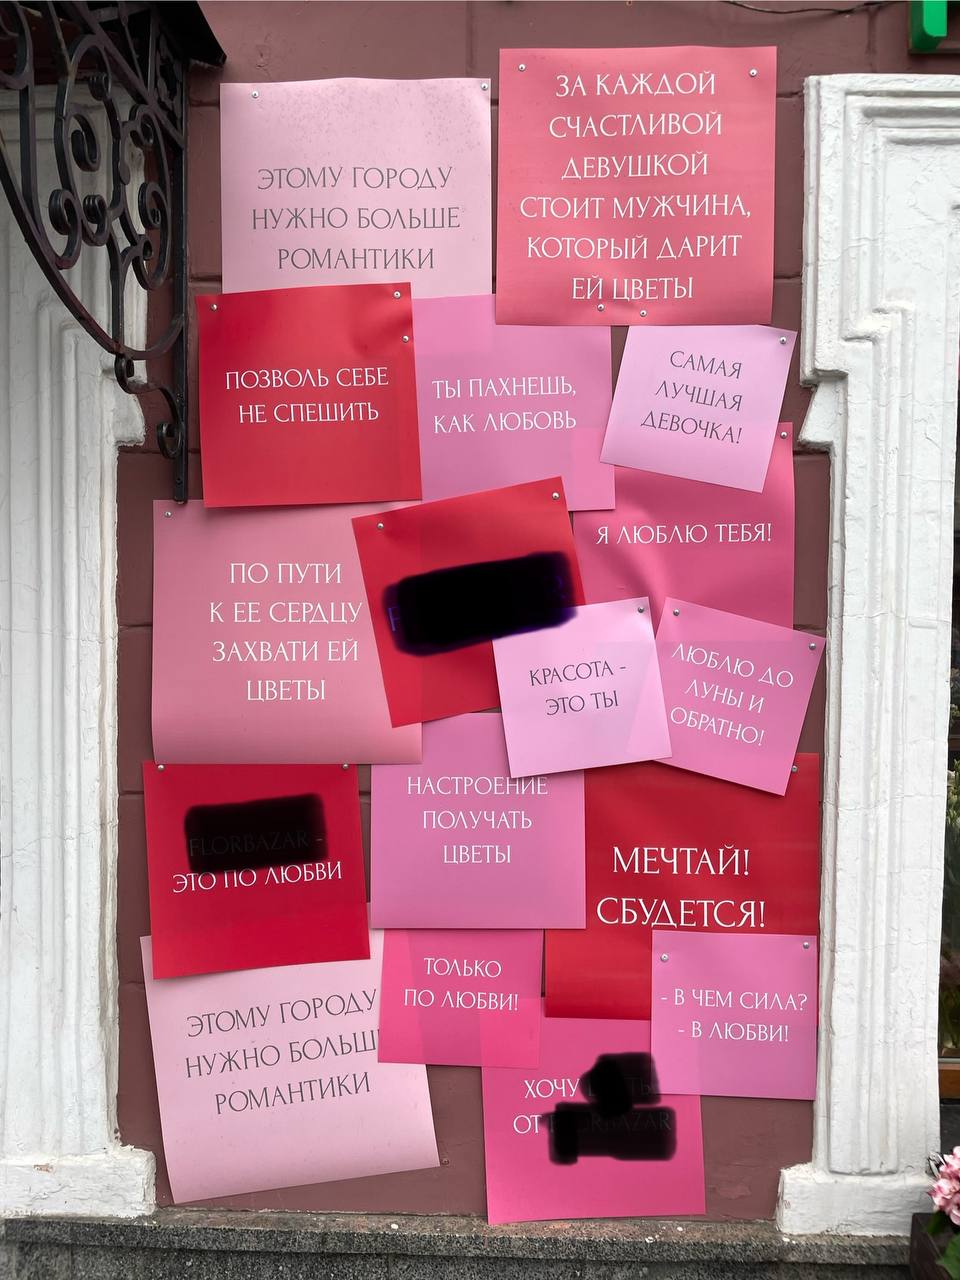 ЭТОМУ ГОРОДУ
НУЖНО БОЛЬШЕ
РОМАНТИКИ
ЗА КАЖДОЙ
СЧАСТЛИВОЙ
ДЕВУШКОЙ
СТОИТ МУЖЧИНА,
КОТОРЫЙ ДАРИТ
ЕЙ ЦВЕТЫ
ПОЗВОЛЬ СЕБЕ
НЕ СПЕШИТЬ
ТЫ ПАХНЕШЬ,
КАК ЛЮБОВЬ
САМАЯ
ЛУЧШАЯ
ДЕВОЧКА!
Я ЛЮБЛЮ ТЕБЯ!
ПО ПУТИ
К ЕЕ СЕРДЦУ
ЗАХВАТИ ЕЙ
ЦВЕТЫ
КРАСОТА -
ЭТО ТЫ
ЛЮБЛЮ ДО
ЛУНЫ И
ОБРАТНО!
FLORBAZAR -
ЭТО ПО ЛЮБВИ
НАСТРОЕНИЕ
ПОЛУЧАТЬ
ЦВЕТЫ
МЕЧТАЙ!
СБУДЕТСЯ!
ЭТОМУ ГОРОДУ
НУЖНО БОЛЬШ
РОМАНТИКИ
ТОЛЬКО
ПО ЛЮБВИ!
- В ЧЕМ СИЛА?
- В ЛЮБВИ!
ХОЧУ
ОТ FLORBAZAR